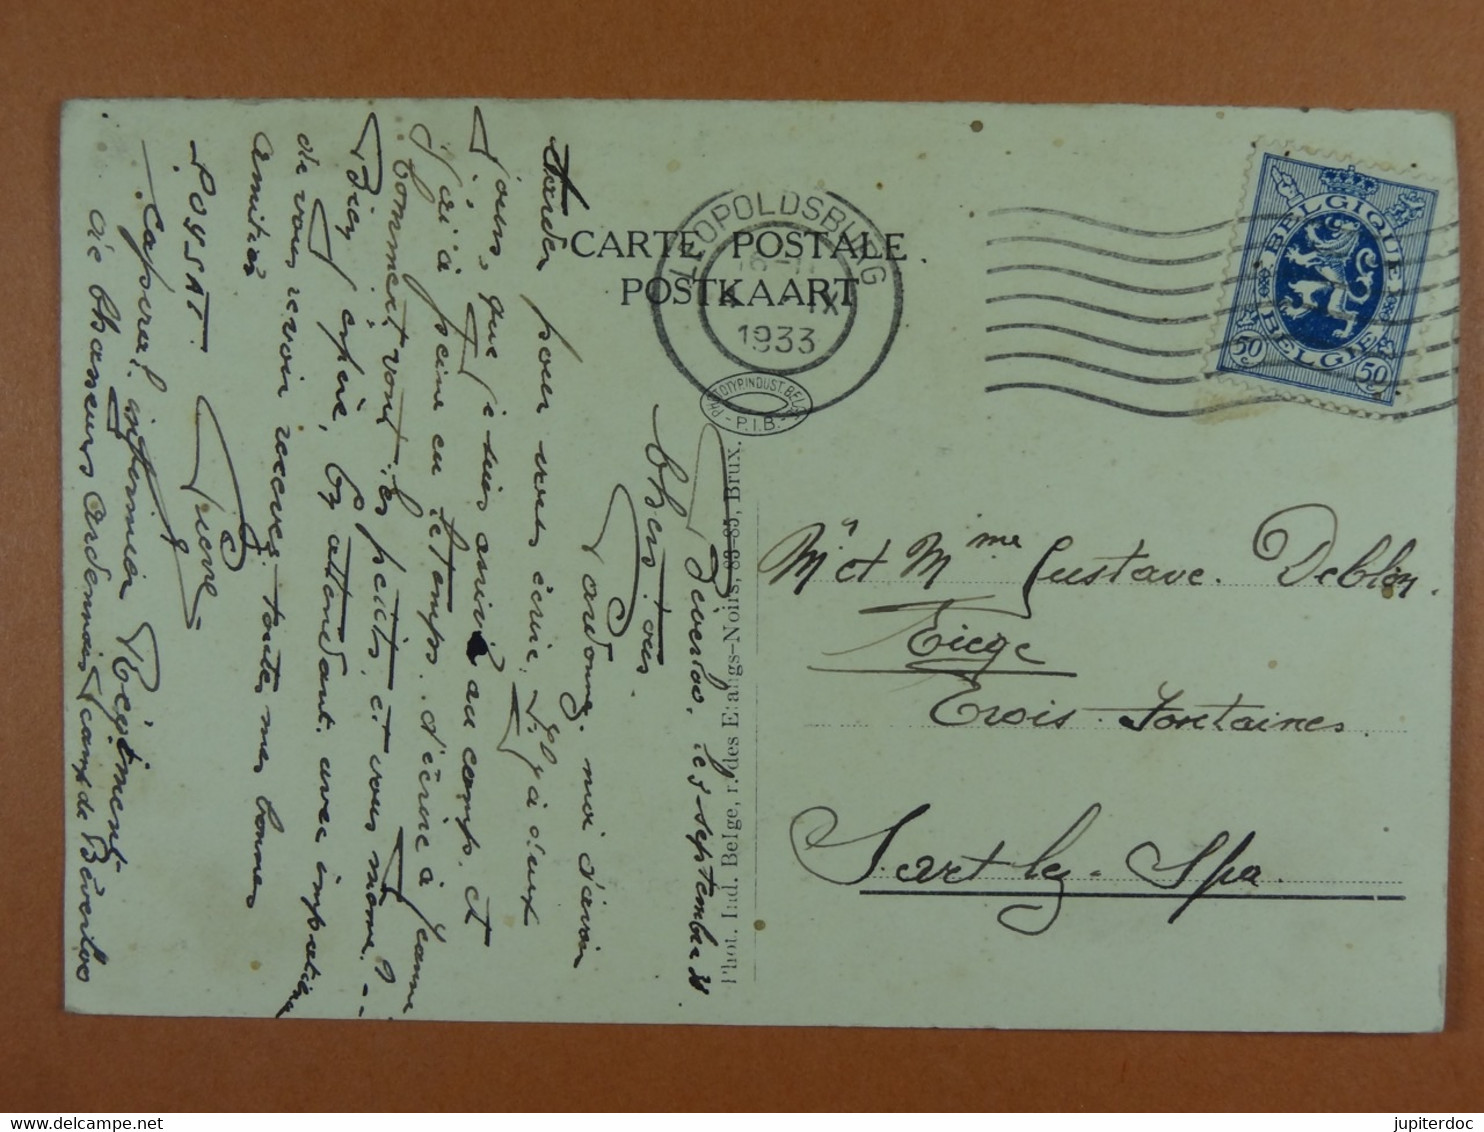 CARTE POSTALE
POSTKAART
LEOPOLDSBURG
1933
IX
PHOTOTYP. INDUST. BELGE
P.I.B.
BELGIQUE
BELGIË
50 50
Phot. Ind. Belge, r. des Etangs-Noirs, 83-85, Brux.
Mr et Mme Gustave Deblon.
Liège
Trois Fontaines.
Sart-lez-Spa.
Beverloo, le 3 septembre
Chers tous.
Pardonnez moi d'avoir
tarder pour vous écrire. Il y a deux
jours, que je suis arrivé au camp. et
j'ai à peine eu le temps d'écrire à Jeanne
Comment vont les petits, et vous même?
Bien j'espère, En attendant avec impatience
de vous revoir recevez toutes mes bonnes
amitiés
Pierre
POSSAT.
Caporal infirmier Régiment
de Chasseurs Ardennais camp de Beverloo